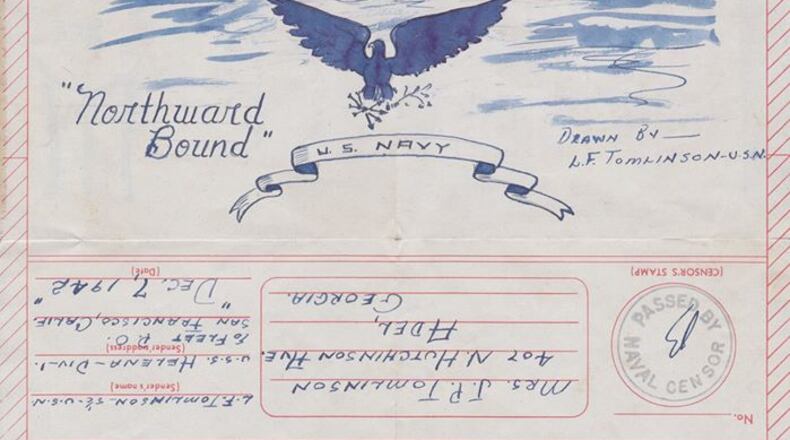 "Northward
Bound"
U. S. NAVY
DRAWN BY —
L.F. TOMLINSON-U.S.N.
No.
(CENSOR'S STAMP)
PASSED BY
NAVAL CENSOR
MRS. J.P. TOMLINSON
407 N. HUTCHINSON AVE.
ADEL,
GEORGIA.
L.F. TOMLINSON-S2-U.S.N.
(Sender's name)
U.S.S. HELENA-DIV-1.
(Sender's address)
% FLEET P.O.
SAN FRANCISCO, CALIF.
"DEC. 7, 1942"
(Date)